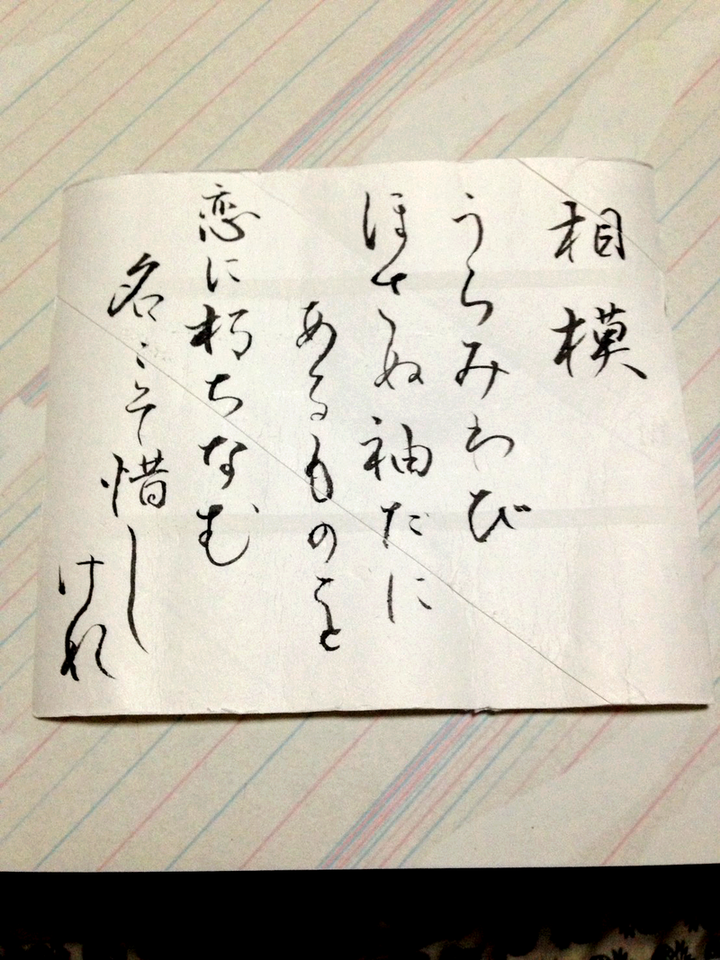 相模
うらみわび
ほさぬ袖だに
あるものを
恋に朽ちなむ
名こそ惜し
けれ